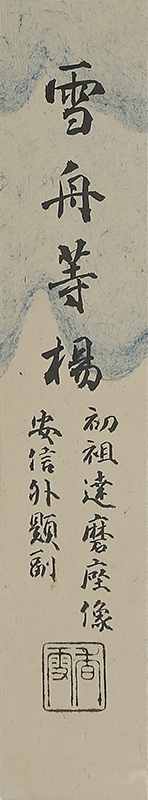 雪舟等楊
初祖達磨座像
安信外題副
香雪